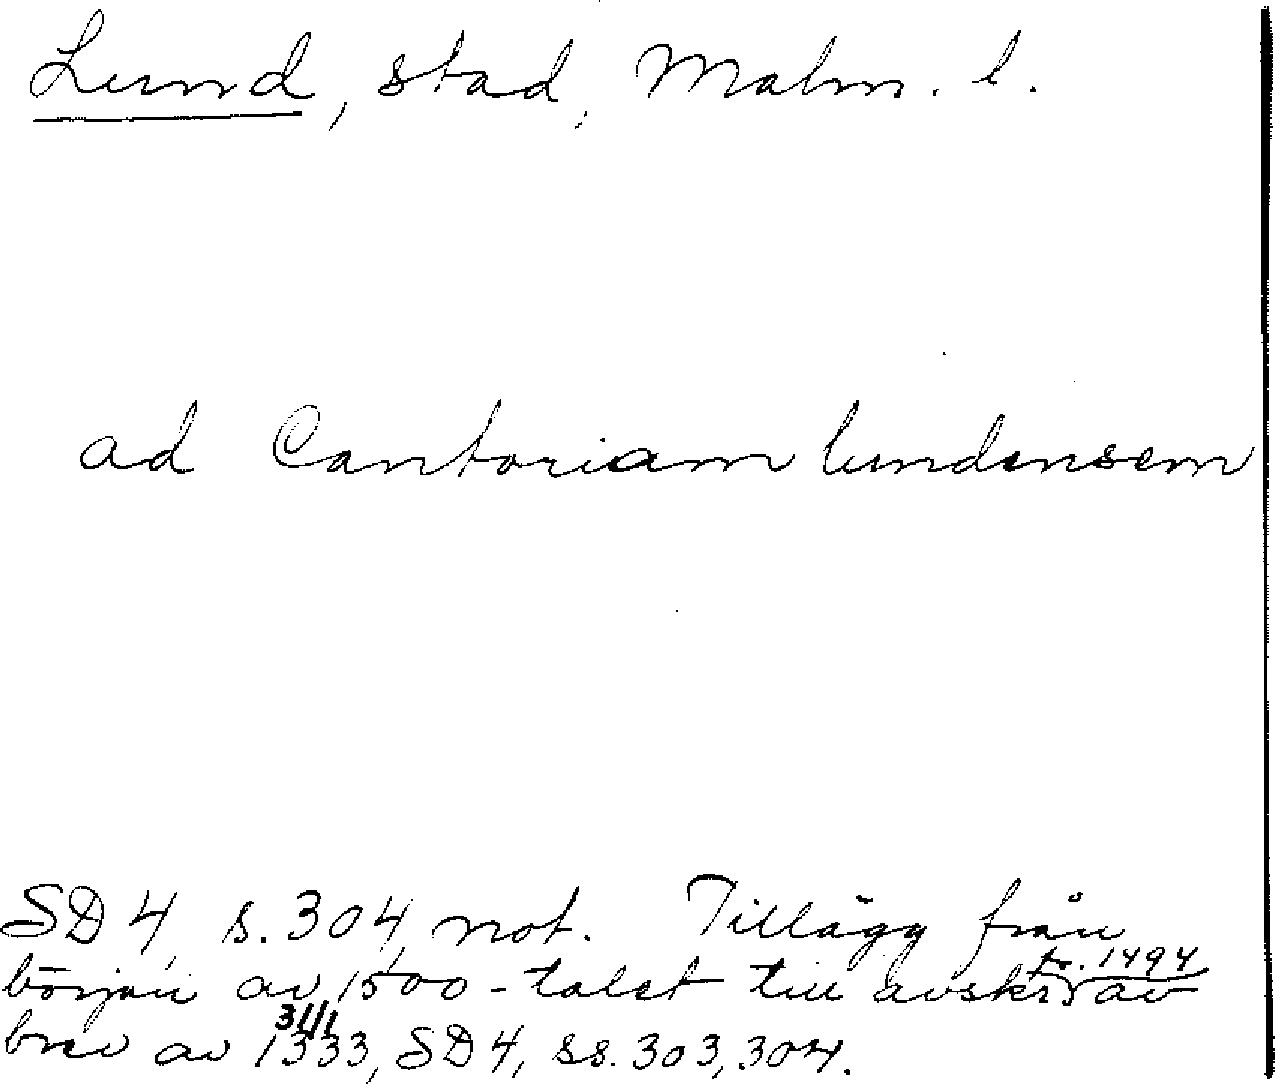 Lund, stad, Malm. l.
ad Cantoriam lundensem
SD 4, s. 304, not. Tillägg från
början av 1500-talet till avskr. fr. 1494 av
brev av 31/1 1333, SD 4, ss. 303, 304.